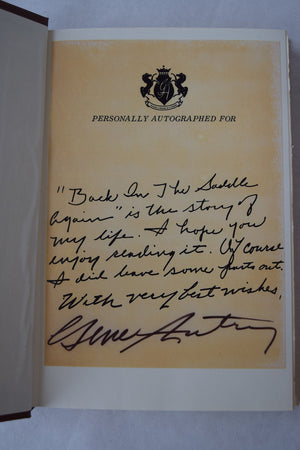 PERSONALLY AUTOGRAPHED FOR
"Back In The Saddle
Again" is the story of
my life. I hope you
enjoy reading it. Of course
I did leave some parts out.
With very best wishes,
Gene Autry